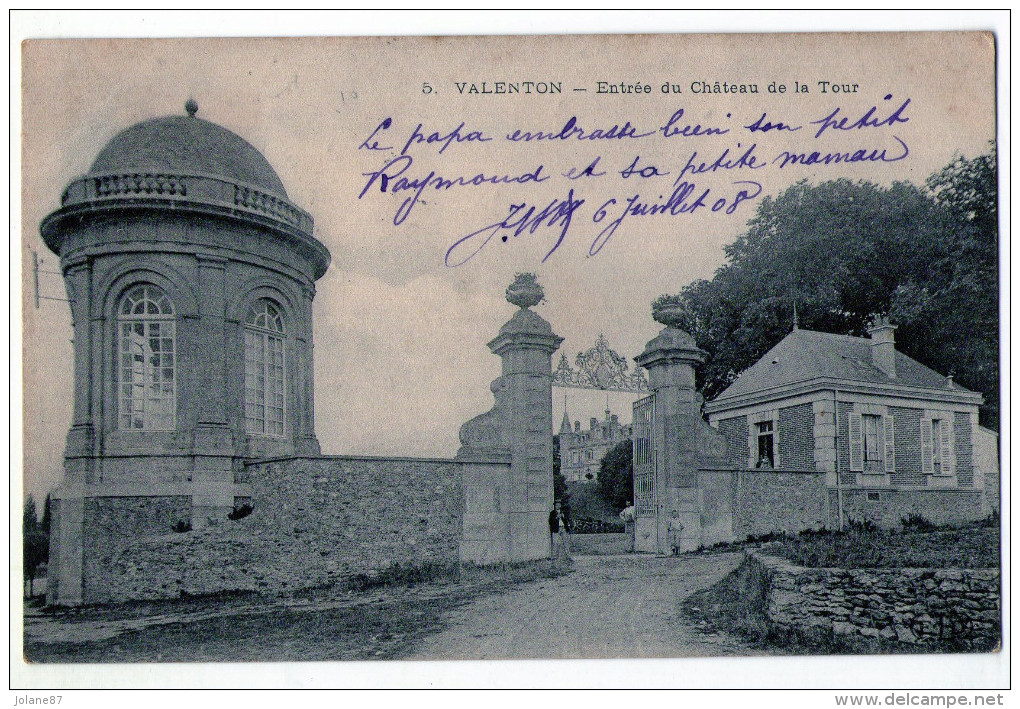 5. VALENTON — Entrée du Château de la Tour
Le papa embrasse bien son petit
Raymond et sa petite maman
6 Juillet 08
ELD
jolane87
www.delcampe.net